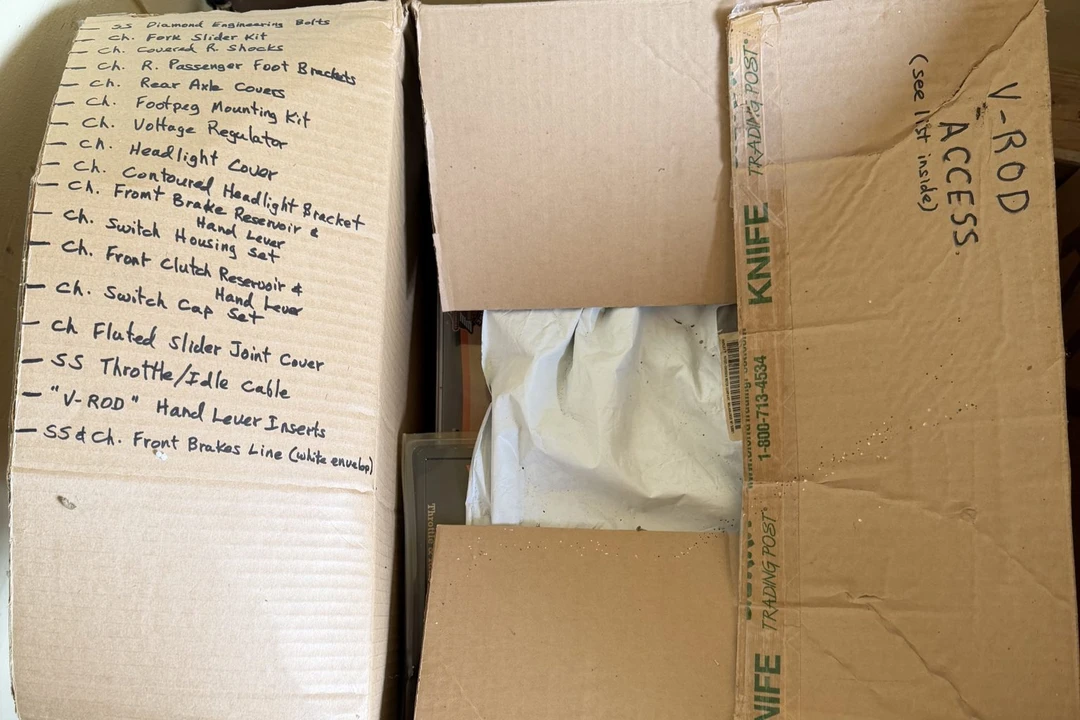 — SS Diamond Engineering Bolts
— Ch. Fork Slider Kit
— Ch. Covered R. Shocks
— Ch. R. Passenger Foot Brackets
— Ch. Rear Axle Covers
— Ch. Footpeg Mounting Kit
— Ch. Voltage Regulator
— Ch. Headlight Cover
— Ch. Contoured Headlight Bracket
— Ch. Front Brake Reservoir &
Hand Lever
— Ch. Switch Housing Set
— Ch. Front Clutch Reservoir &
Hand Lever
— Ch. Switch Cap Set
— Ch Fluted Slider Joint Cover
— SS Throttle/Idle Cable
— "V-ROD" Hand Lever Inserts
— SS & Ch. Front Brakes Line (white envelop)
Throttle &
TRADING POST
KNIFE
1-800-713-4534
TRADING POST
NIFE
V-ROD
ACCESS.
(see list inside)